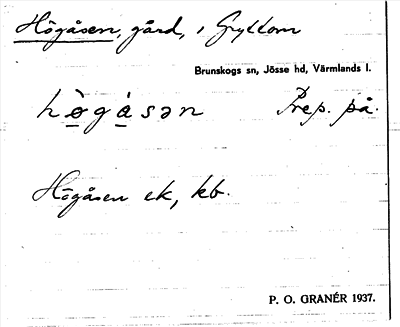 Högåsen, gård, i Gryttom
Brunskogs sn, Jösse hd, Värmlands l.
hò̱gá̱sən Prep. på.
Högåsen ek, kb.
P. O. GRANÉR 1937.